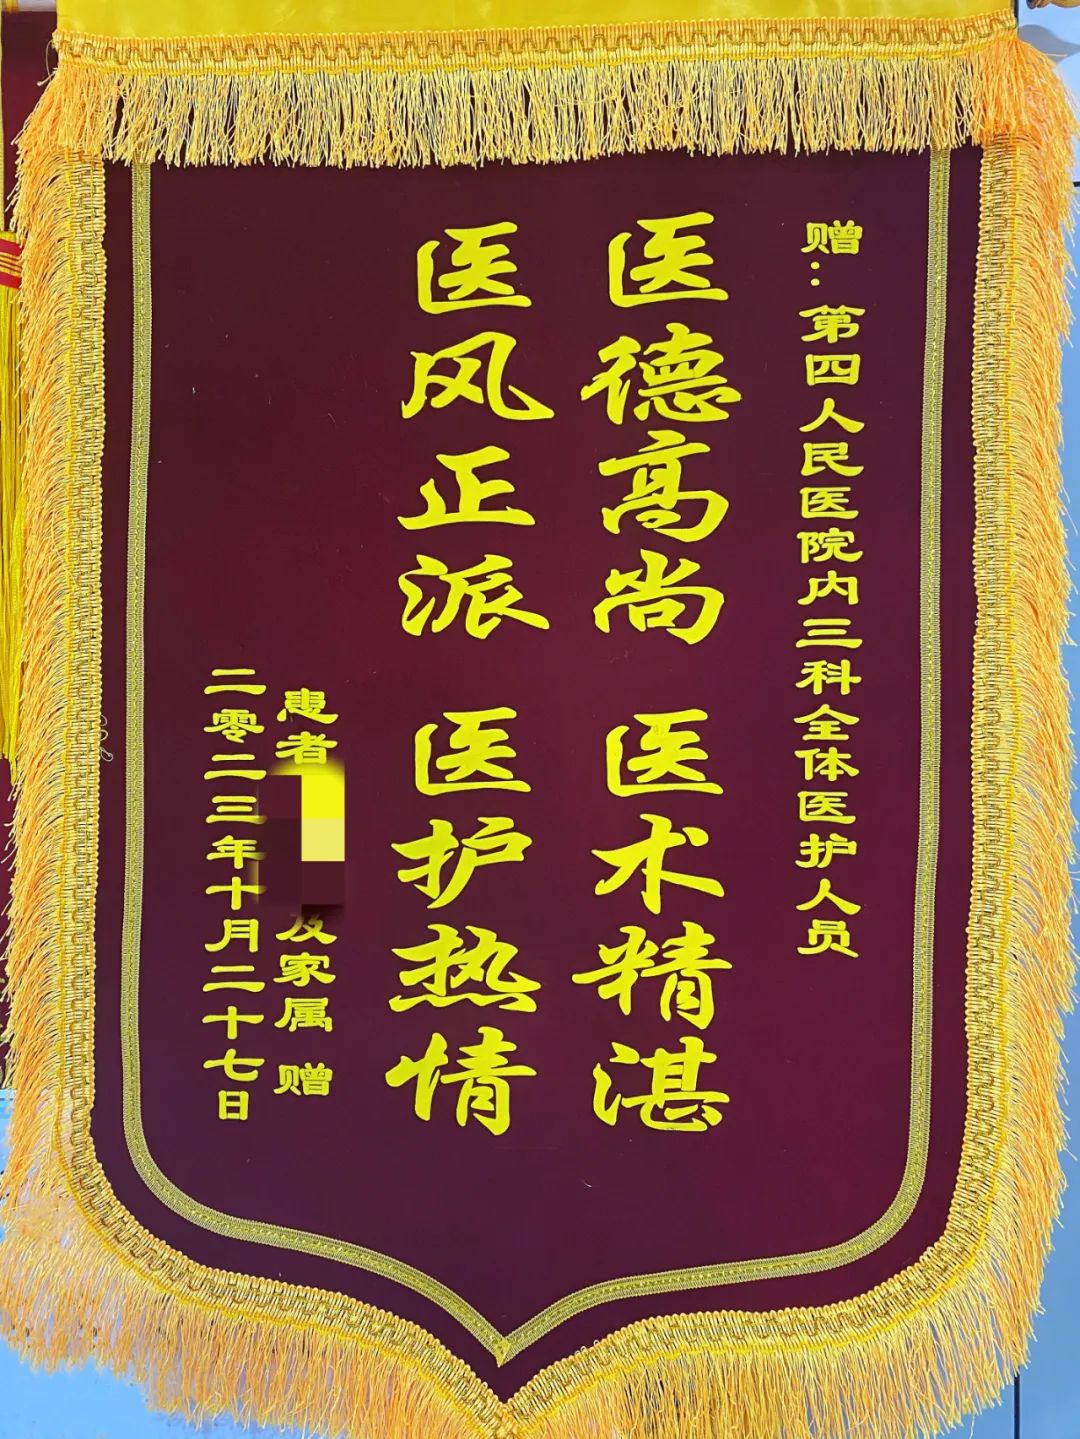 赠：第四人民医院内三科全体医护人员
医德高尚 医术精湛
医风正派 医护热情
患者 及家属 赠
二零二三年十月二十七日